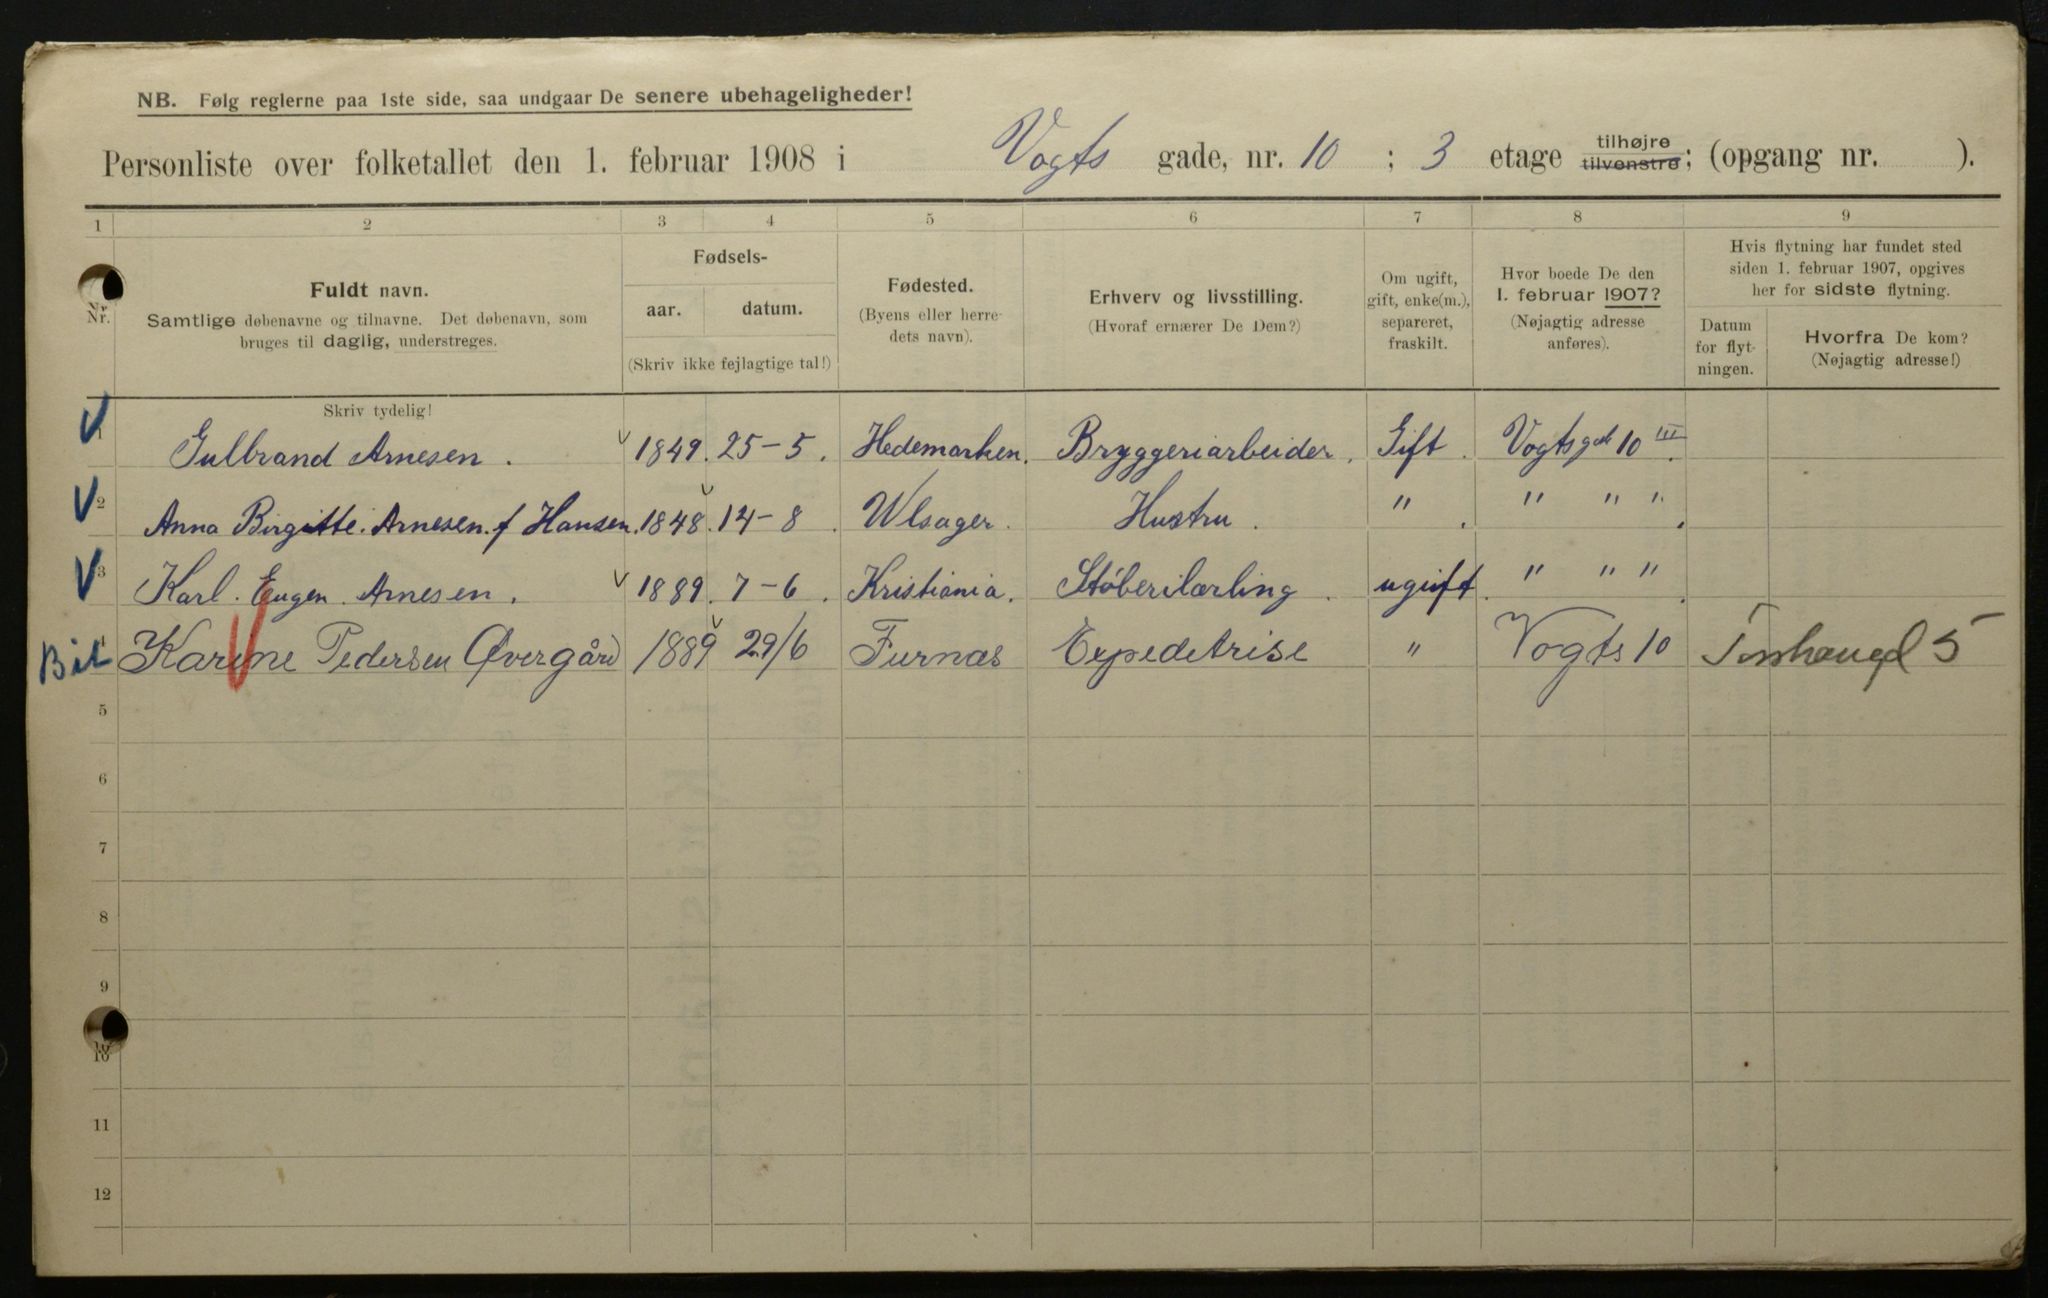 NB. Følg reglerne paa 1ste side, saa undgaar De senere ubehageligheder!
Personliste over folketallet den 1. februar 1908 i Vogts gade, nr. 10 ; 3 etage tilhøjre tilvenstre; (opgang nr. ).
1 2 3 4 5 6 7 8 9
Nr. Fuldt navn. Samtlige døbenavne og tilnavne. Det døbenavn, som bruges til daglig, understreges.
Fødsels- aar. datum. (Skriv ikke fejlagtige tal!)
Fødested. (Byens eller herredets navn).
Erhverv og livsstilling. (Hvoraf ernærer De Dem?)
Om ugift, gift, enke(m.), separeret, fraskilt.
Hvor boede De den 1. februar 1907? (Nøjagtig adresse anføres).
Hvis flytning har fundet sted siden 1. februar 1907, opgives her for sidste flytning.
Datum for flytningen. Hvorfra De kom? (Nøjagtig adresse!)
Skriv tydelig!
1 Gulbrand Arnesen. 1849. 25-5. Hedemarken. Bryggeriarbeider. Gift. Vogtsgd 10 III.
2 Anna Birgitte. Arnesen. f Hansen. 1848. 14-8. Ulsager. Hustru. " . " " " .
3 Karl. Eugen. Arnesen. 1889. 7-6. Kristiania. Støberilærling. ugift. " " " .
Bil 4 Karine Pedersen Øvergård 1889 29/6 Furnæs Expedetrise " Vogts 10 5
5
6
7
8
9
10
11
12